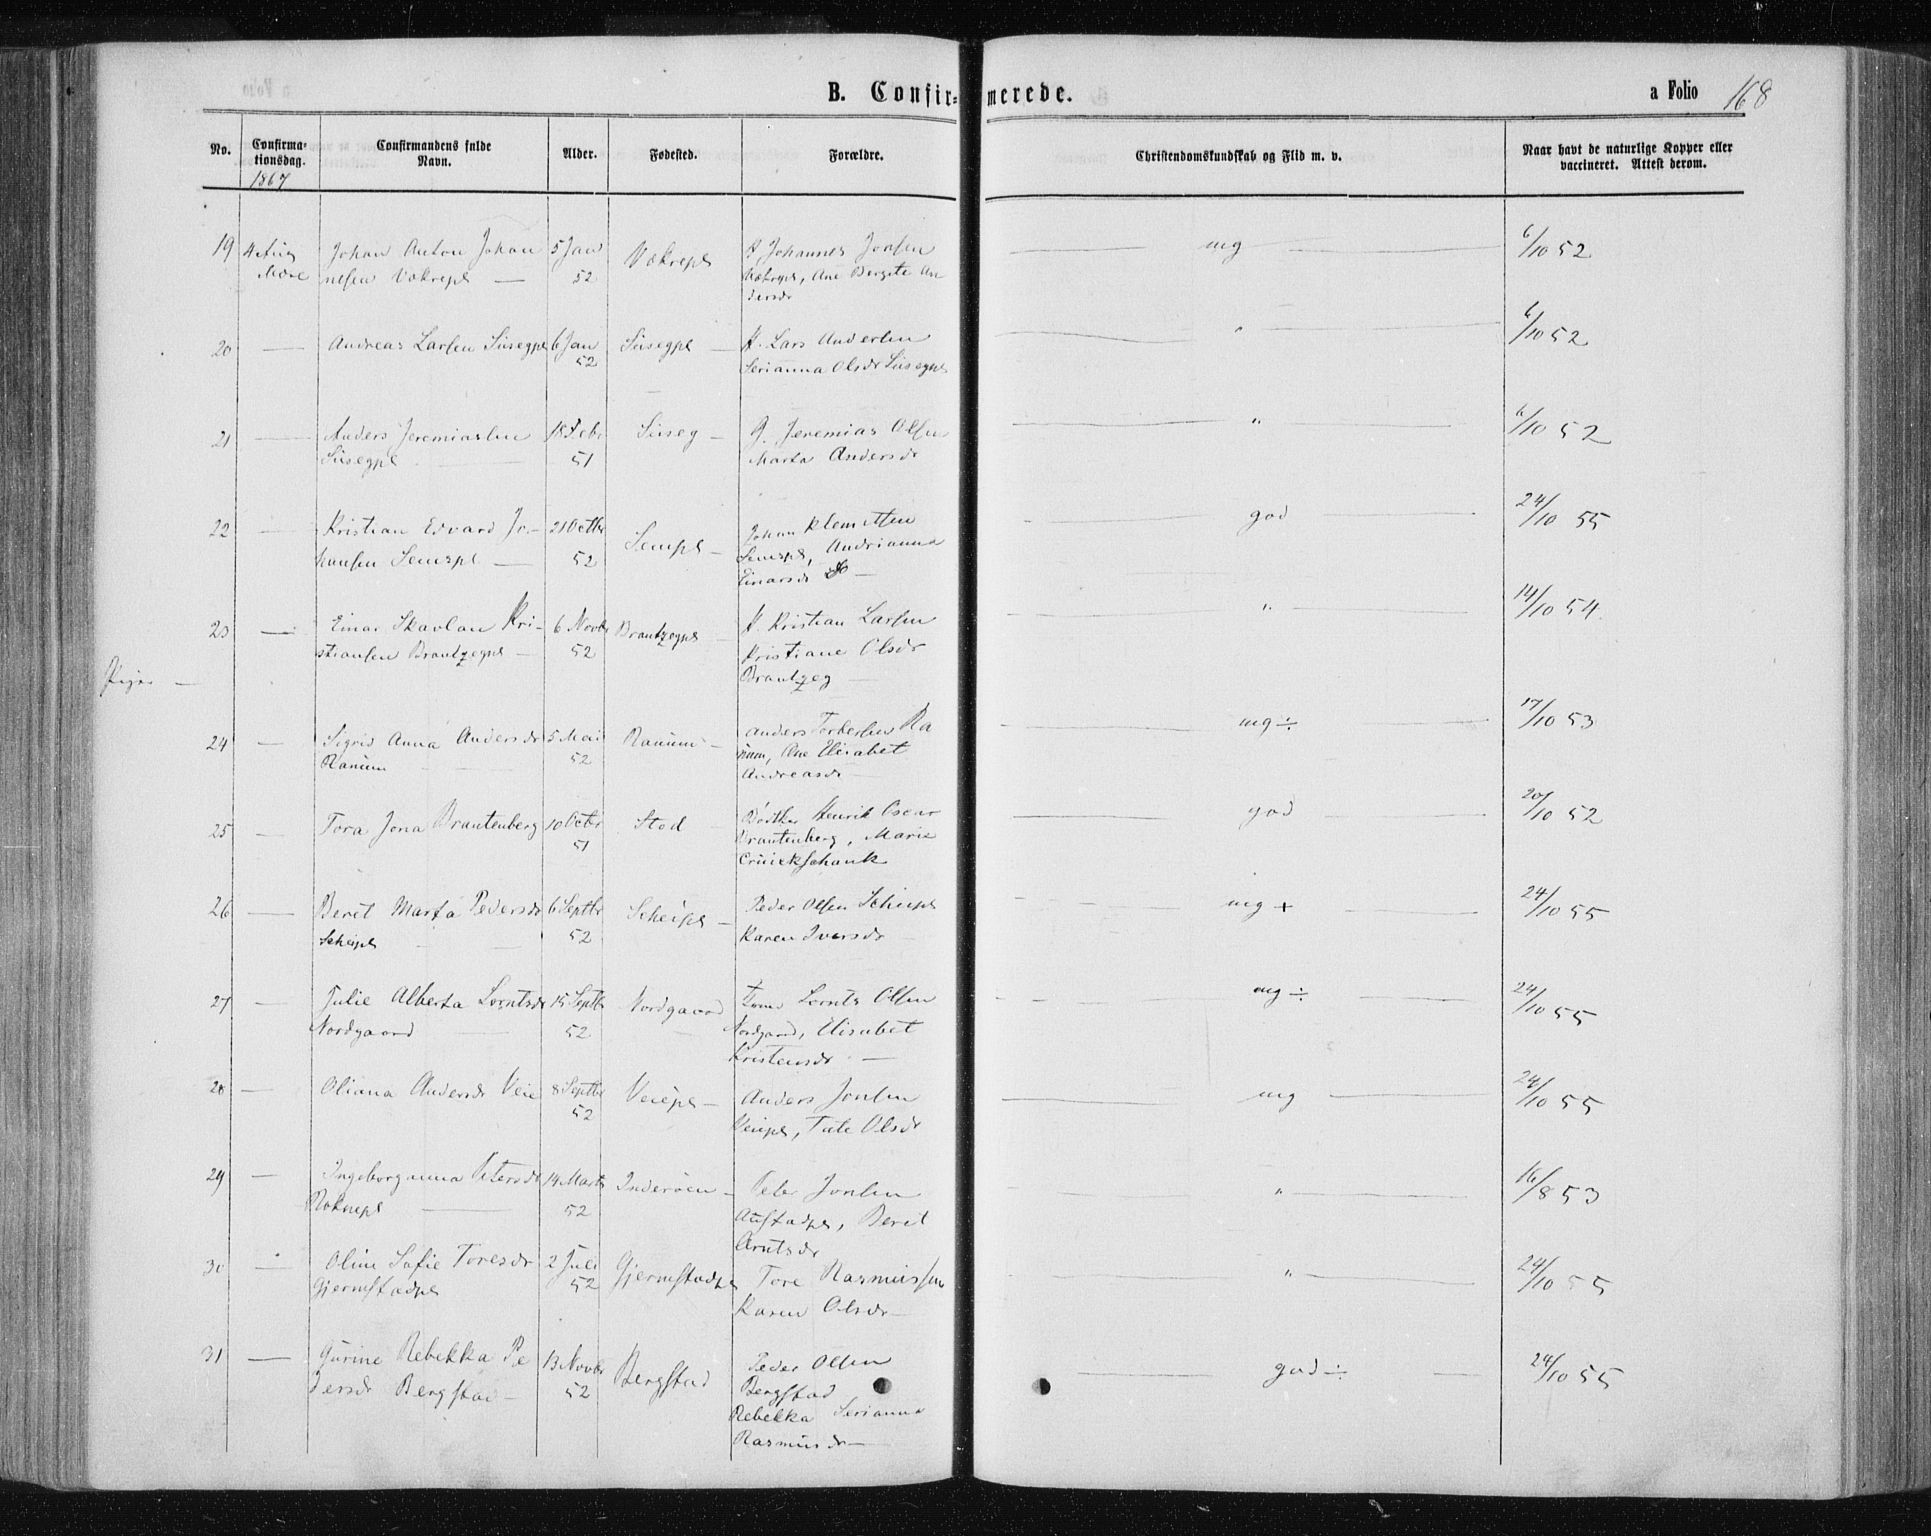 B. Confirmerede.
a Folio 168
No.
Confirmationsdag.
1867
Confirmandens fulde Navn.
Alder.
Fødested.
Forældre.
Christendomskundskab og Flid m. v.
Naar havt de naturlige Kopper eller
vaccineret. Attest derom.
19 4 Aug Johan Anton Johan 5 Jan Vækrepl H Johannes Jonsen mg 6/10 52
Mære nesen Vækrepl — 52 Vækrepl, Ane Bergite An
dersdr
20 — Andreas Larsen Susegpl 6 Jan Susegpl — H. Lars Andersen " 6/10 52
52 Serianna Olsdr Susegpl
21 — Anders Jeremiassen 18 Febr Suseg — G. Jeremias Olsen " 6/10 52
Susegpl — 51 Marta Andersdr
22 — Kristian Edvard Jo- 21 Octbr Sempl — Johan Klemetsen god 24/10 55
hansen Semspl — 52 Semspl, Andrianna
Einarsdr —
23 — Einar Skavlan Kri- 6 Novbr Brantzegpl — H. Kristian Larsen " 14/10 54
stiansen Brantzegpl — 52 Kristiane Olsdr
Brantzeg —
Piger —
24 — Sigrid Anna Andersdr 5 Mai Ranum — Anders Torbersen Ra mg ÷ 17/10 53
Ranum — 52 num, Ane Elisabet
Andreasdr —
25 — Tora Jona Brantenberg 10 Octbr Stod — Henrik Oscar god 20/10 52
51 Brantenberg, Marie
Cruickschank
26 — Beret Marta Pedersdr 6 Septbr Scheipl — Peder Olsen Scheipl mg + 24/10 55
Scheipl — 52 Karen Iversdr —
27 — Julie Alberta Lorntsdr 15 Septbr Nordgaard Lornts Olsen mg ÷ 24/10 55
Nordgaard — 52 Nordgaard, Elisabet
Kristensdr —
28 — Oliana Andersdr Veie 8 Septbr Veiepl — Anders Jonsen mg 24/10 55
52 Veiepl, Olsdr
29 — Ingeborganna Petersdr 14 Marts Inderøen — Peter Jonsen " 16/8 53
Røknepl — 52 Austadpl, Beret
Arntsdr
30 — Oline Sofie Toresdr 2 Juli Gjermstadpl Tore Rasmussen " 24/10 55
Gjermstadpl 52 Karen Olsdr —
31 — Gurine Rebekka Pe 13 Novbr Bergstad Peder Olsen god ÷ 24/10 55
dersdr Bergstad — 52 Bergstad
Rebekka Serianna
Rasmusdr —